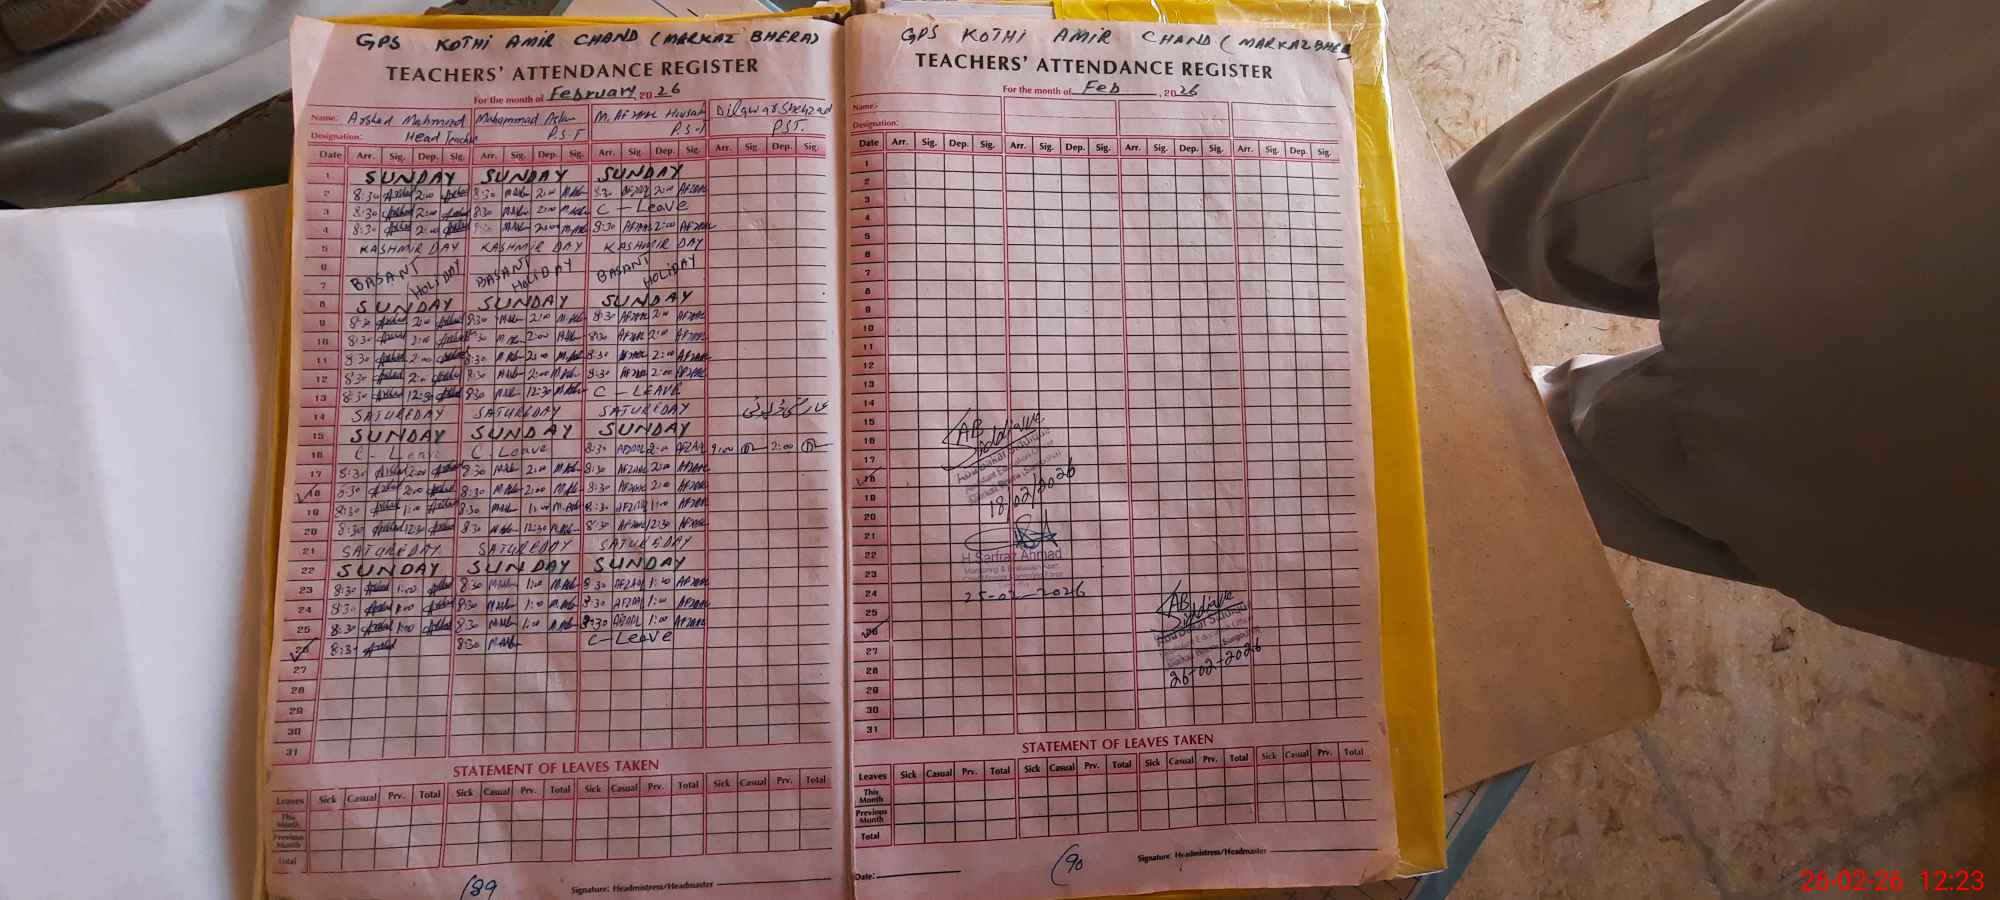 GPS KOTHI AMIR CHAND (MARKAZ BHERA)
TEACHERS' ATTENDANCE REGISTER
For the month of February, 2026
Name: Arshad Mahmood Muhammad Aslam M. Afzaal Hussain Dilawar Shehzad
Designation: Head Teacher P.S.T P.S.T PST.
Date Arr. Sig. Dep. Sig. Arr. Sig. Dep. Sig. Arr. Sig. Dep. Sig. Arr. Sig. Dep. Sig.
1 SUNDAY SUNDAY SUNDAY
2 8:30 Arshad 2:00 Arshad 8:30 2:00 8:30 AFZAAL 2:00 AFZAAL
3 8:30 Arshad 2:00 Arshad 8:30 2:00 C-Leave
4 8:30 2:00 8:30 2:00 8:30 AFZAAL 2:00 AFZAAL
5 KASHMIR DAY KASHMIR DAY KASHMIR DAY
6
7 BASANT HOLIDAY BASANT HOLIDAY BASANT HOLIDAY
8 SUNDAY SUNDAY SUNDAY
9 8:30 Arshad 2:00 Arshad 8:30 2:00 8:30 AFZAAL 2:00 AFZAAL
10 8:30 2:00 8:30 2:00 8:30 AFZAAL 2:00 AFZAAL
11 8:30 Arshad 2:00 8:30 2:00 8:30 AFZAAL 2:00 AFZAAL
12 8:30 2:00 8:30 2:00 8:30 AFZAAL 2:00 AFZAAL
13 8:30 Arshad 12:30 8:30 12:30 C-LEAVE
14 SATUREDAY SATUREDAY SATUREDAY عارضی ڈیوٹی
15 SUNDAY SUNDAY SUNDAY
16 C-Leave C Leave 8:30 AFZAAL 2:00 AFZAAL 9:00 2:00
17 8:30 Arshad 2:00 8:30 2:00 8:30 AFZAAL 2:00 AFZAAL
18 8:30 Arshad 2:00 8:30 2:00 8:30 AFZAAL 2:00 AFZAAL
19 8:30 Arshad 1:00 8:30 1:00 8:30 AFZAAL 1:00 AFZAAL
20 8:30 Arshad 12:30 8:30 12:30 8:30 AFZAAL 12:30 AFZAAL
21 SATUREDAY SATUREDAY SATUREDAY
22 SUNDAY SUNDAY SUNDAY
23 8:30 Arshad 1:00 Arshad 8:30 1:00 8:30 AFZAAL 1:00 AFZAAL
24 8:30 Arshad 1:00 8:30 1:00 8:30 AFZAAL 1:00 AFZAAL
25 8:30 Arshad 1:00 8:30 1:00 8:30 AFZAAL 1:00 AFZAAL
26 8:30 Arshad 8:30 C-Leave
27
28
29
30
31
STATEMENT OF LEAVES TAKEN
Leaves Sick Casual Prv. Total Sick Casual Prv. Total Sick Casual Prv. Total Sick Casual Prv. Total
This Month
Previous Month
Total
Signature: Headmistress/Headmaster
(89
GPS KOTHI AMIR CHAND (MARKAZ BHER
TEACHERS' ATTENDANCE REGISTER
For the month of Feb, 2026
Name:-
Designation:
Date Arr. Sig. Dep. Sig. Arr. Sig. Dep. Sig. Arr. Sig. Dep. Sig. Arr. Sig. Dep. Sig.
1
2
3
4
5
6
7
8
9
10
11
12
13
14
15
16 AB Siddique
17
18
19 18/02/2026
20
21
22 H Sarfraz Ahmad
23
24 25-02-2026
25 AB
26 Siddique
27
28 26-02-2026
29
30
31
STATEMENT OF LEAVES TAKEN
Leaves Sick Casual Prv. Total Sick Casual Prv. Total Sick Casual Prv. Total Sick Casual Prv. Total
This Month
Previous Month
Total
Signature: Headmistress/Headmaster
(90
Date:
26-02-26 12:23